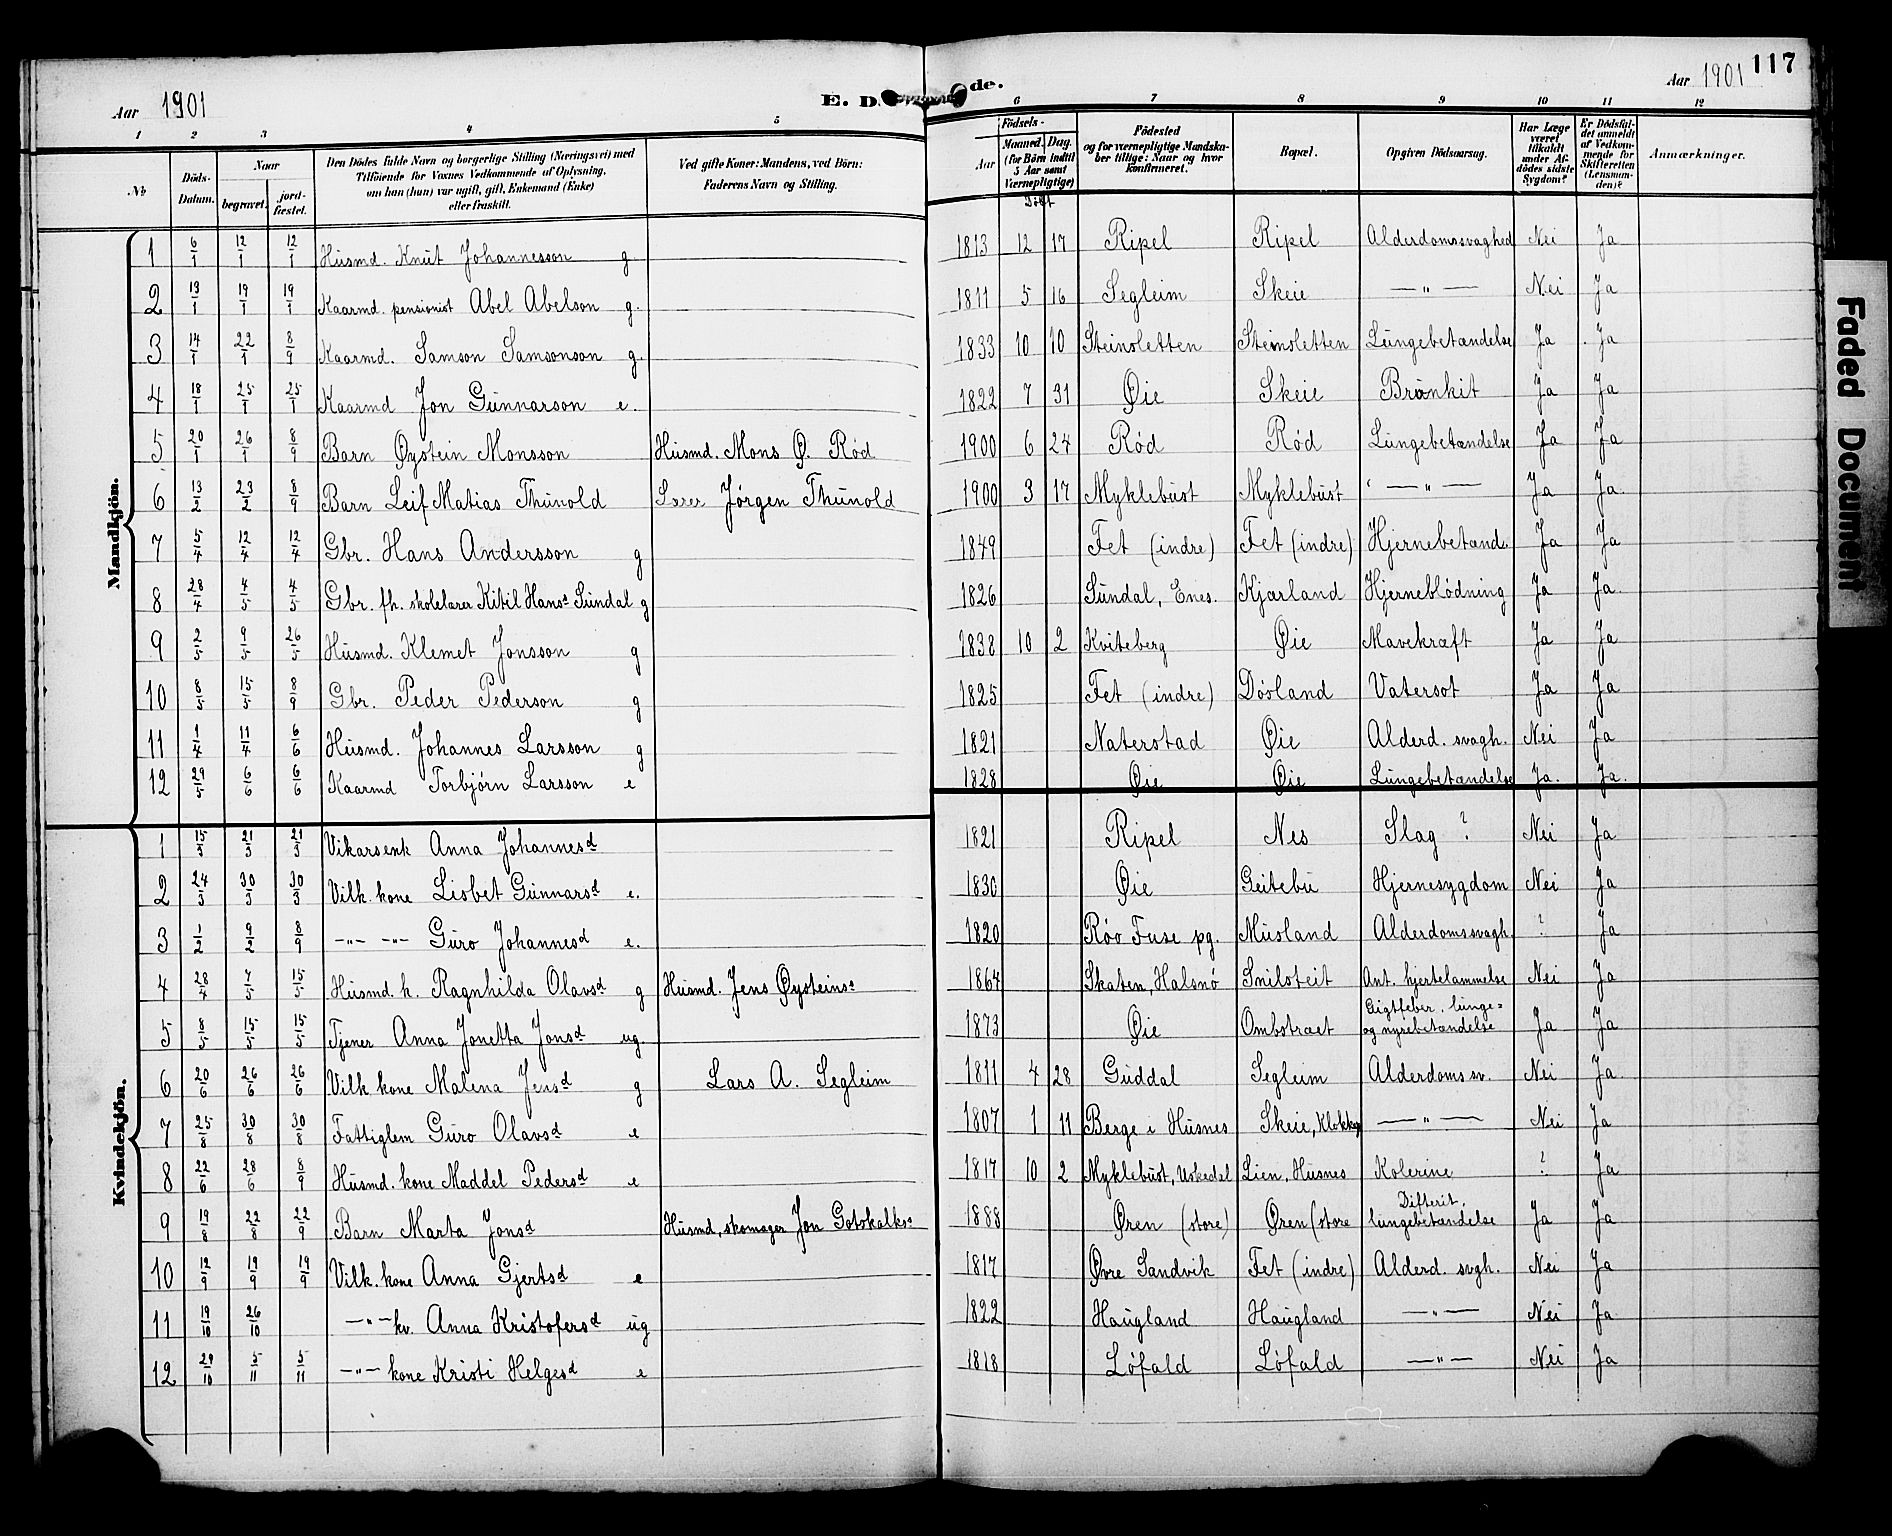 117
Aar 1901
E. D
de.
Aar 1901
1 2 3 4 5 6 7 8 9 10 11 12
No
Döds-Datum.
Naar
begravet.
jord-fæstet.
Den Dödes fulde Navn og borgerlige Stilling (Næringsvei) med
Tilföiende for Voxnes Vedkommende af Oplysning,
om han (hun) var ugift, gift, Enkemand (Enke)
eller fraskilt.
Ved gifte Koner: Mandens, ved Börn:
Faderens Navn og Stilling.
Födsels-
Aar
Maaned. Dag.
(for Börn indtil
5 Aar samt
Værnepligtige)
Döbt
Födested
og for værnepligtige Mandska-
ber tillige: Naar og hvor
konfirmeret.
Bopæl.
Opgiven Dödsaarsag.
Har Læge
været
tilkaldt
under Af-
dödes sidste
Sygdom?
Er Dödsfal-
det anmeldt
af Vedkom-
mende for
Skifteretten
(Lensman-
den)?
Anmærkninger.
Mandkjön.
1 6/1 12/1 12/1 Husmd. Knut Johannesson g. 1813 12 17 Ripel Ripel Alderdomssvaghed Nei Ja
2 13/1 19/1 19/1 Kaarmd. pensionist Abel Abelson g. 1811 5 16 Segleim Skeie —"— Nei Ja
3 14/1 22/1 8/9 Kaarmd. Samson Samsonson g. 1833 10 10 Steinsletten Steinsletten Lungebetændelse Ja Ja
4 18/1 25/1 25/1 Kaarmd Jon Gunnarson e. 1822 7 31 Øie Skeie Bronkit Ja Ja
5 20/1 26/1 8/9 Barn Øystein Monsson Husmd. Mons Ø. Röd 1900 6 24 Röd Röd Lungebetændelse Ja Ja
6 13/2 23/2 8/9 Barn Leif Matias Thunold Lærer Jörgen Thunold 1900 3 17 Myklebust Myklebust —"— Ja Ja.
7 5/4 12/4 12/4 Gbr. Hans Andersson g 1849 Fet (indre) Fet (indre) Hjernebetænd. Ja Ja
8 28/4 4/5 4/5 Gbr. fh. skolelærer Kitil Hanss Sundal g 1826 Sundal, Enes. Kjærland Hjerneblödning Ja Ja.
9 2/5 9/5 26/5 Husmd. Klemet Jonsson g 1838 10 2 Kviteberg Øie Mavekræft Ja Ja
10 8/5 15/5 8/9 Gbr. Peder Pederson g 1825 Fet (indre) Dösland Vatersot Ja Ja
11 1/4 11/4 6/6 Husmd. Johannes Larsson g 1821 Naterstad Øie Alderd. svagh. Nei Ja
12 29/5 6/6 6/6 Kaarmd Torbjörn Larsson e 1828 Øie Øie Lungebetændelse Ja. Ja.
Kvindekjön.
1 15/3 21/3 21/3 Vikarsenk Anna Johannesd 1821 Ripel Nes Slag ? Nei Ja
2 24/3 30/3 30/3 Vilk. kone Lisbet Gunnarsd e. 1830 Øie Geitebu Hjernesygdom Nei Ja
3 1/2 9/2 8/9 —"— —"— Guro Johannesd e. 1820 Röo Fuse pg. Musland Alderdomssvagh. ? Ja
4 28/4 7/5 15/5 Husmd. k. Ragnhilda Olavsd g Husmd. Jens Øysteins 1864 Skaten, Halsnö Snilsteit Ant. hjertelammelse Nei Ja
5 8/5 15/5 15/5 Tjener Anna Jonetta Jonsd ug. 1873 Øie Ombstræt Gigtfeber, lunge= og nyrebetændelse Ja Ja
6 20/6 26/6 26/6 Vilk kone Malena Jensd g Lars A. Segleim 1811 4 28 Guddal Segleim Alderdoms sv. Nei Ja
7 25/8 30/8 30/8 Fattiglem Guro Olavsd e 1807 1 11 Berge i Husnes Skeie, —"— Nei Ja
8 22/6 28/6 8/9 Husmd. kone Maddel Pedersd e 1817 10 2 Myklebust, Uskedal Lien, Husnes Kolerine ? Ja
9 19/8 22/8 22/9 Barn Marta Jonsd Husmd, skomager Jon Gotskalks 1888 Øren (store) Øren (store Difterit, lungebetændelse Ja Ja
10 12/9 19/9 19/9 Vilk. kone Anna Gjertsd e 1817 Øvre Sandvik Fet (indre) Alderd. svgh. Nei Ja
11 19/10 26/10 —"— kv. Anna Kristofersd ug 1822 Haugland Haugland —"— Nei Ja
12 29/10 5/11 5/11 —"— kone Kristi Helgesd e 1818 Löfald Löfald —"— Nei Ja
Faded Document